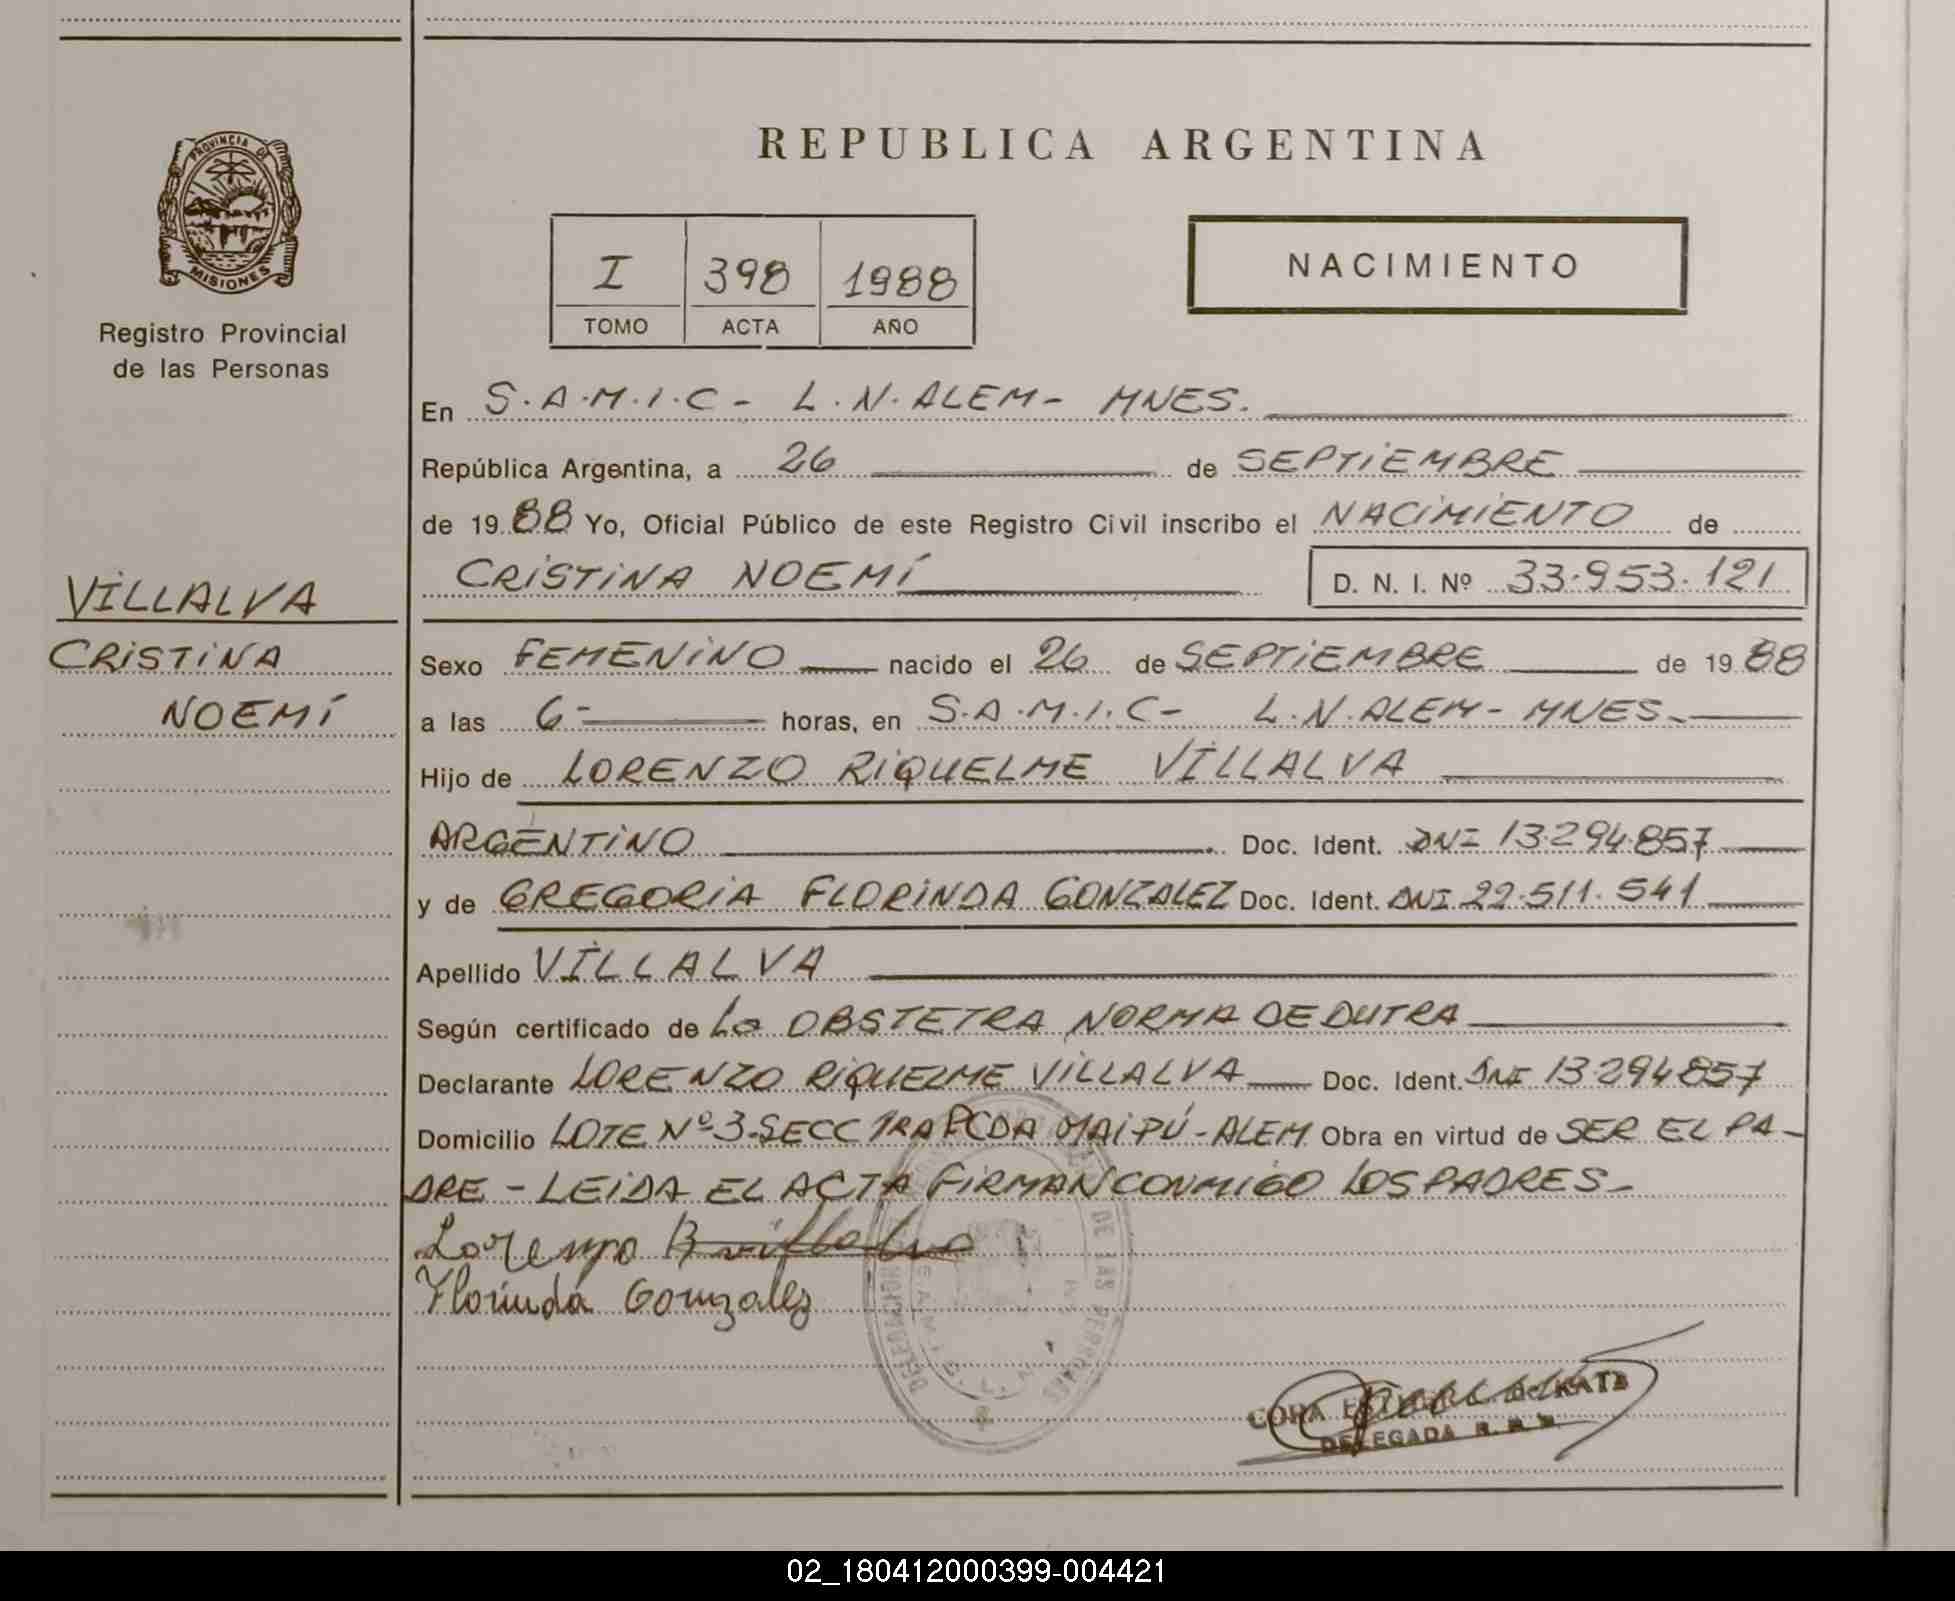 PROVINCIA DE
MISIONES
Registro Provincial
de las Personas
VILLALVA
CRISTINA
NOEMÍ
REPUBLICA ARGENTINA
I 398 1988
TOMO ACTA AÑO
NACIMIENTO
En S.A.M.I.C- L.N.ALEM- MNES.
República Argentina, a 26 de SEPTIEMBRE
de 1988 Yo, Oficial Público de este Registro Civil inscribo el NACIMIENTO de
CRISTINA NOEMÍ D. N. I. Nº 33.953.121
Sexo FEMENINO nacido el 26 de SEPTIEMBRE de 1988
a las 6- horas, en S.A.M.I.C- L.N.ALEM- MNES.
Hijo de LORENZO RIQUELME VILLALVA
ARGENTINO Doc. Ident. DNI 13.294.857
y de GREGORIA FLORINDA GONZALEZ Doc. Ident. DNI 22.511.541
Apellido VILLALVA
Según certificado de La OBSTETRA NORMA DE DUTRA
Declarante LORENZO RIQUELME VILLALVA Doc. Ident. DNI 13.294.857
Domicilio LOTE Nº 3-SECC 1RA PCDA MAIPÚ-ALEM Obra en virtud de SER EL PA-
DRE - LEIDA EL ACTA FIRMAN CONMIGO LOS PADRES-
Lorenzo R villalva
Florinda Gonzalez
DE LAS PERSONAS
DELEGADA
02_180412000399-004421